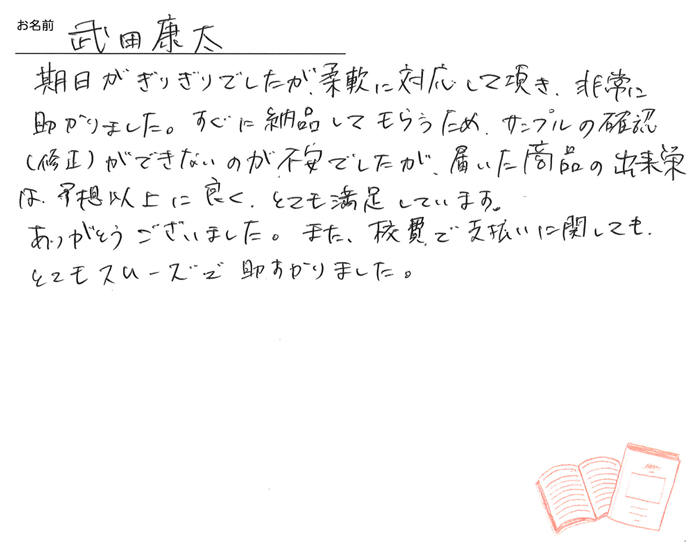 お名前 武田康太
期日がぎりぎりでしたが、柔軟に対応して頂き、非常に
助かりました。すぐに納品してもらうため、サンプルの確認
(修正)ができないのが不安でしたが、届いた商品の出来栄
は、予想以上に良く、とても満足しています。
ありがとうございました。また、校費で支払いに関しても、
とてもスムーズで助すかりました。